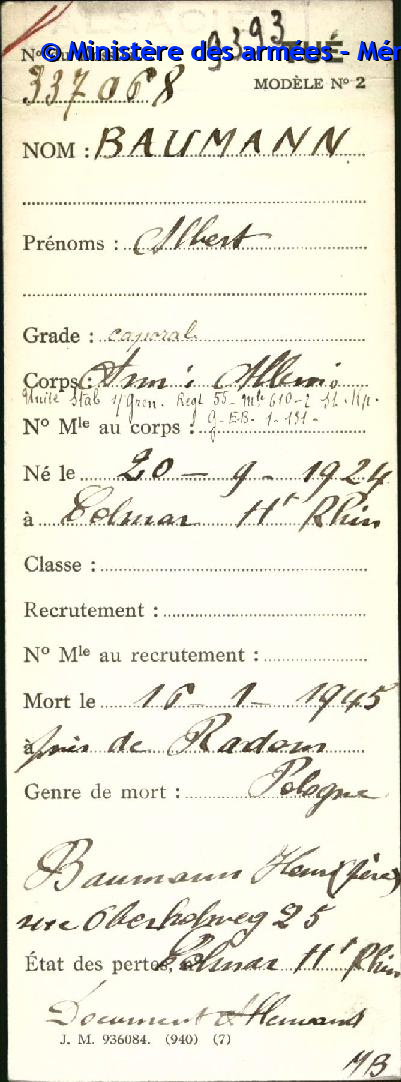 © Ministère des armées - Mém
3393 TUÉ
337068
MODÈLE Nº 2
NOM : BAUMANN
Prénoms : Albert
Grade : caporal
Corps : Armée Allem.
Unité Stab I/Gren. Regt 55 - Mle 610-2 St. Kp.
Nº Mle au corps : G.E.B. 1-131-
Né le 20 - 9 - 1924
à Colmar Ht Rhin
Classe :
Recrutement :
Nº Mle au recrutement :
Mort le 16 - 1 - 1945
à près de Radom
Genre de mort : Pologne
Baumann Henri (père)
rue Oberhohweg 25
État des pertes, Colmar Ht Rhin
Document Allemand
J. M. 936084. (940) (7)
MB